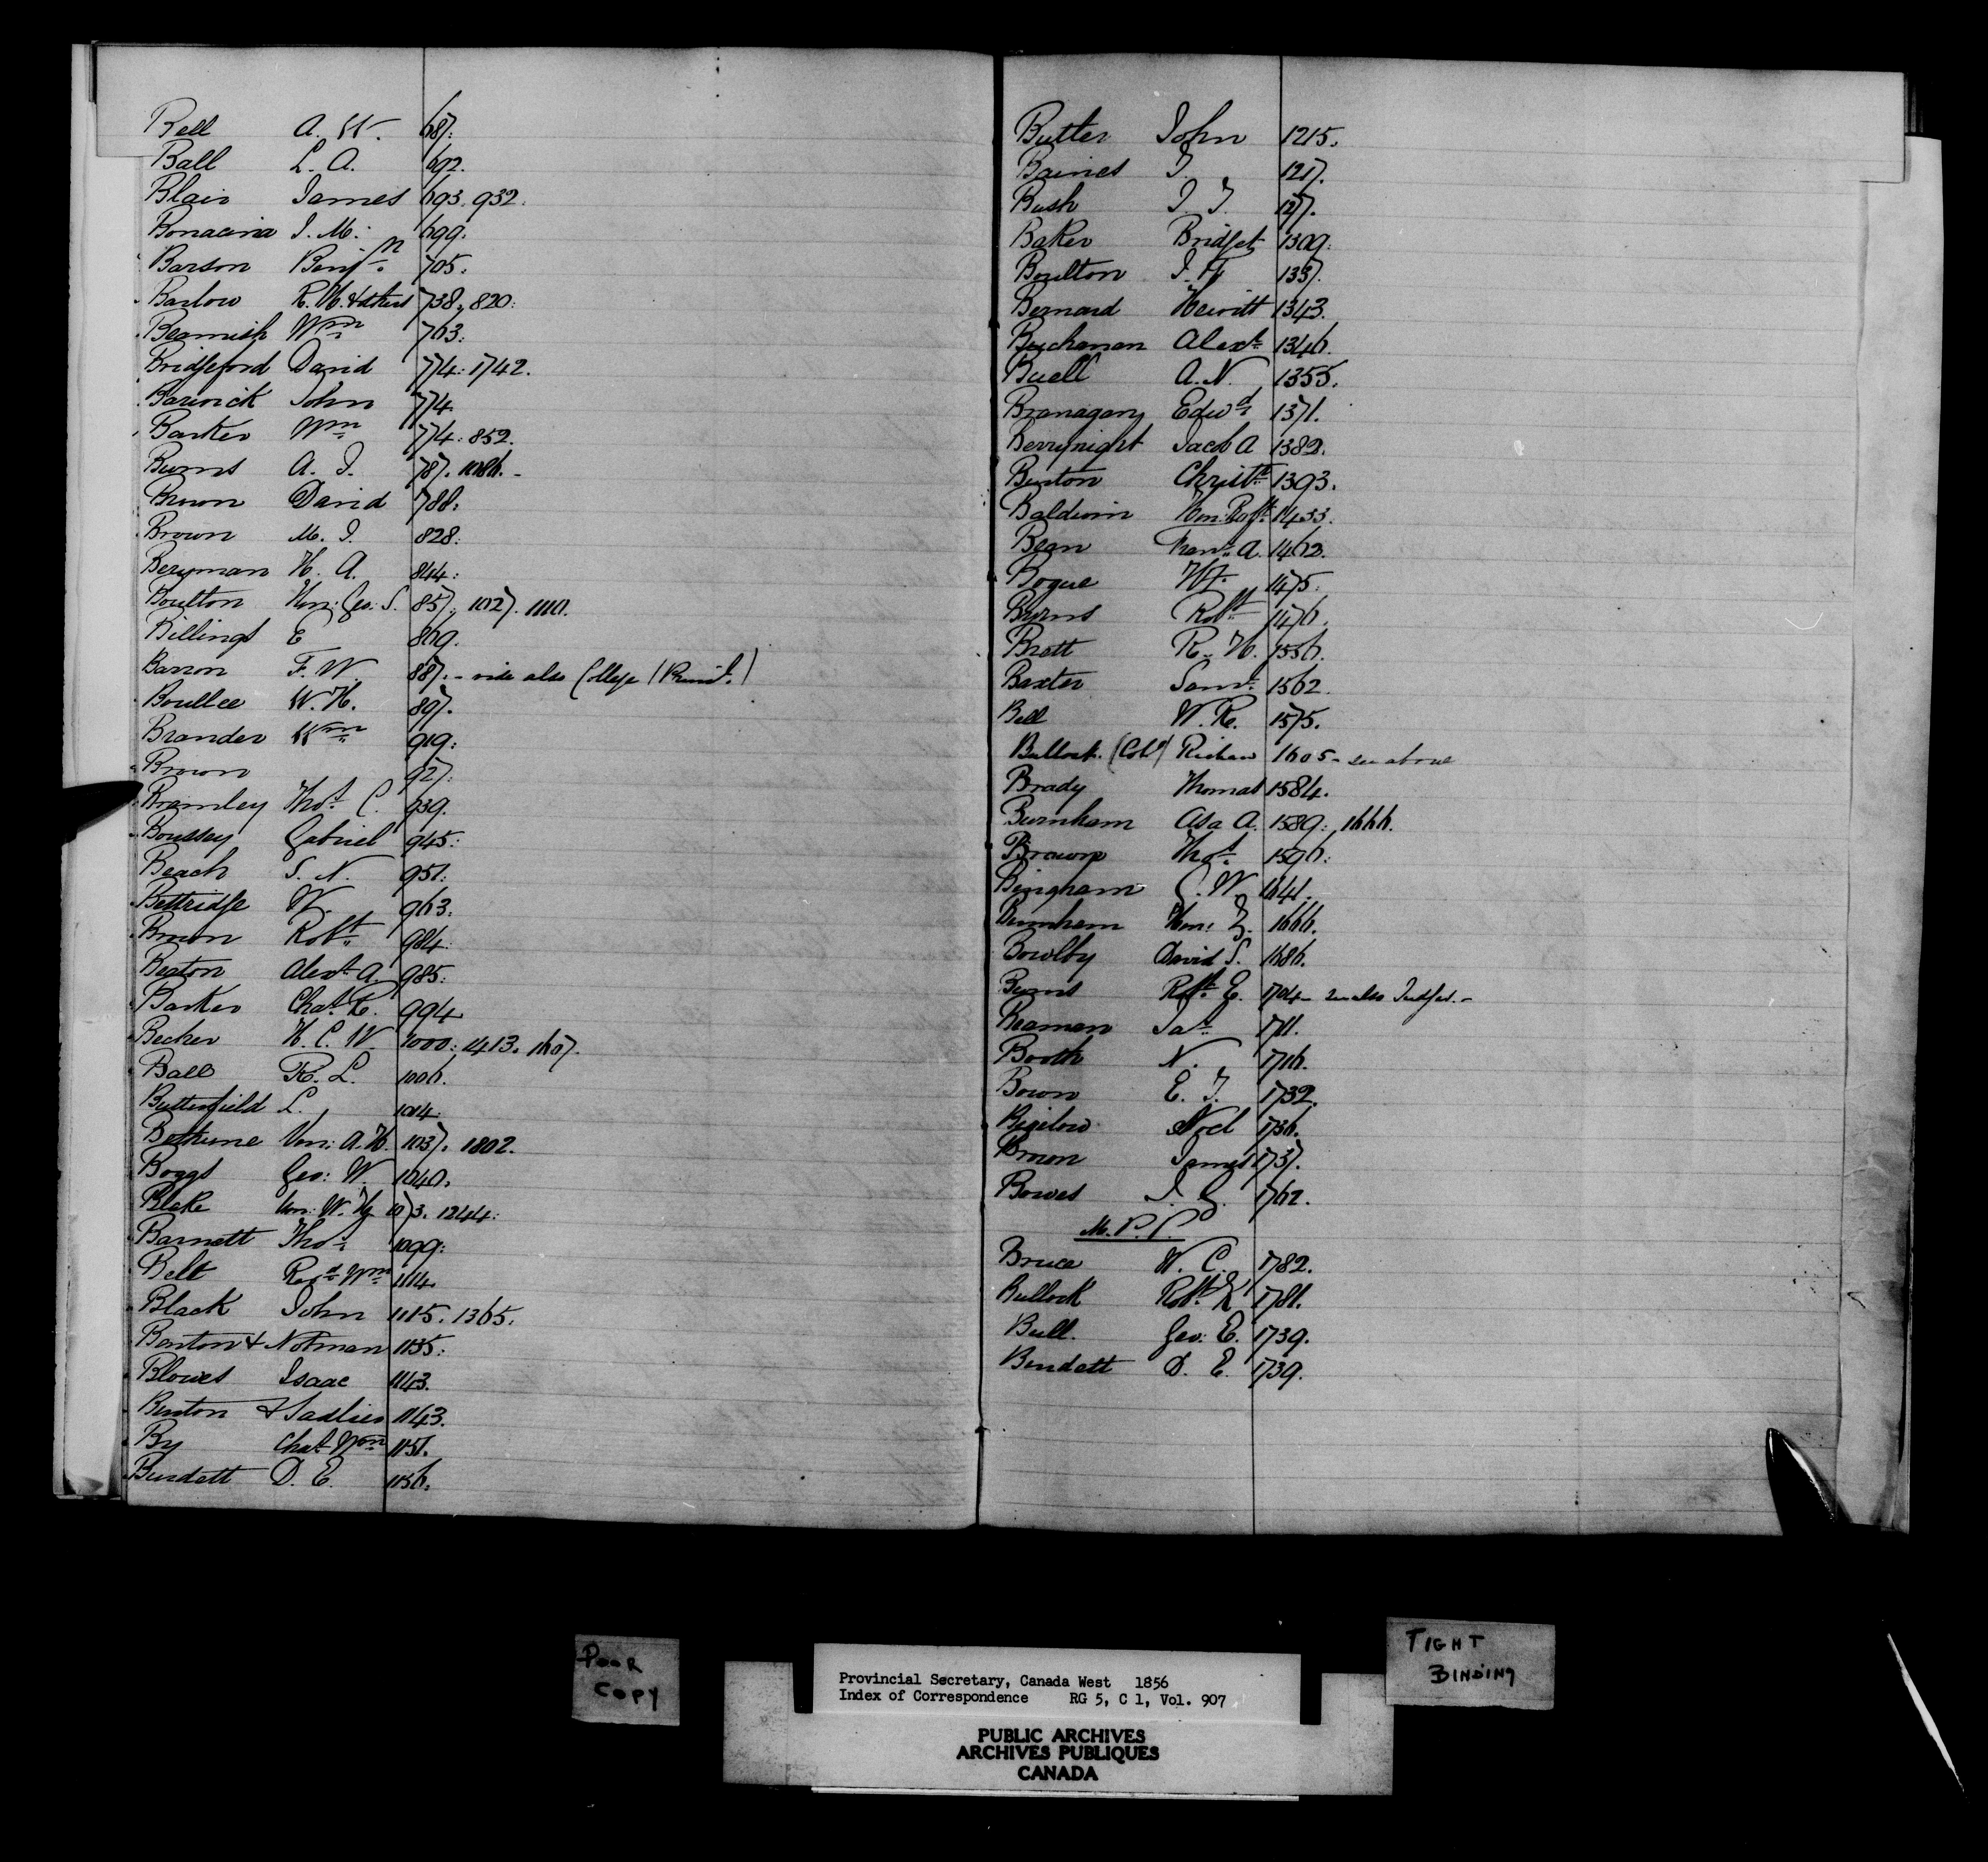 Bell A. W. 687.
Ball L. A. 692.
Blair James 693. 932.
Bonacina J. M. 699.
Barson Benjn. 705.
Barlow R. H. & others 738. 820.
Beamish Wm. 763.
Bridgeford David 774. 1742.
Barwick John 774.
Barker Wm. 774. 852.
Burns A. J. 787. 1086.
Brown David 788.
Brown M. J. 828.
Beryman H. A. 844.
Boulton Hon: Geo: S. 857. 1027. 1110.
Billings E 869.
Barron F. W. 887. - vide also College (Princ'l.)
Boultee W. H. 897.
Brander Wm. 919.
Brown 927.
Bramley Thos. C. 939.
Boussey Gabriel 945.
Beach S. N. 951.
Bettridge W. 963.
Brown Robt. 984.
Beaton Alext. A. 985.
Barker Chas. R. 994
Becher H. C. W. 1000. 1413. 1607.
Ball R. L. 1006.
Butterfield L. 1014.
Bethune Ven: A. N. 1037. 1802.
Boggs Geo: W. 1040.
Blake Hon: W. H. 1073. 1244.
Barnett Thos. 1099.
Belt Revd. Wm. 1114.
Black John 1115. 1365.
Benton & Notman 1135.
Blowes Isaac 1143.
Benton & Sadlier 1143.
By Chas. Wm. 1151.
Burdett D. E. 1156.
Butler John 1215.
Baines T. 1217.
Bush J. T. 127.
Baker Bridget 1309.
Boulton J. F. 1337.
Bernard Hewitt 1343.
Buchanan Alext. 1346.
Buell A. N. 1355.
Branagany Edwd. 1371.
Berrynight Jacob A 1382.
Burton Christr. 1393.
Baldwin Hon: Robt. 1433.
Bean A. 1462.
Bogue W. 1475.
Byrns Robt. 1476.
Brett R. H. 1556.
Baxter Saml. 1562.
Bell W. R. 1575.
Bullock (Coll) Richard 1605 - see above
Brady Thomas 1584.
Burnham Asa A. 1589. 1666.
Brown Thos. 1596.
Bingham C. W. 1641.
Burnham Hon: Z. 1666.
Bowlby David S. 1686.
Burns Robt. E. 1704 - see also Judges. -
Beaman Jas. 1711.
Booth N. 1716.
Bown E. T. 1732.
Bigelow Noel 1736.
Brown James 1737.
Bowes J. G. 1762.
M. P. P.
Bruce W. C. 1782.
Bullock Robt. 1786.
Bull. Geo: E. 1739.
Burdett D. E. 1739.
POOR COPY
TIGHT BINDING
Provincial Secretary, Canada West 1856
Index of Correspondence RG 5, C 1, Vol. 907
PUBLIC ARCHIVES
ARCHIVES PUBLIQUES
CANADA